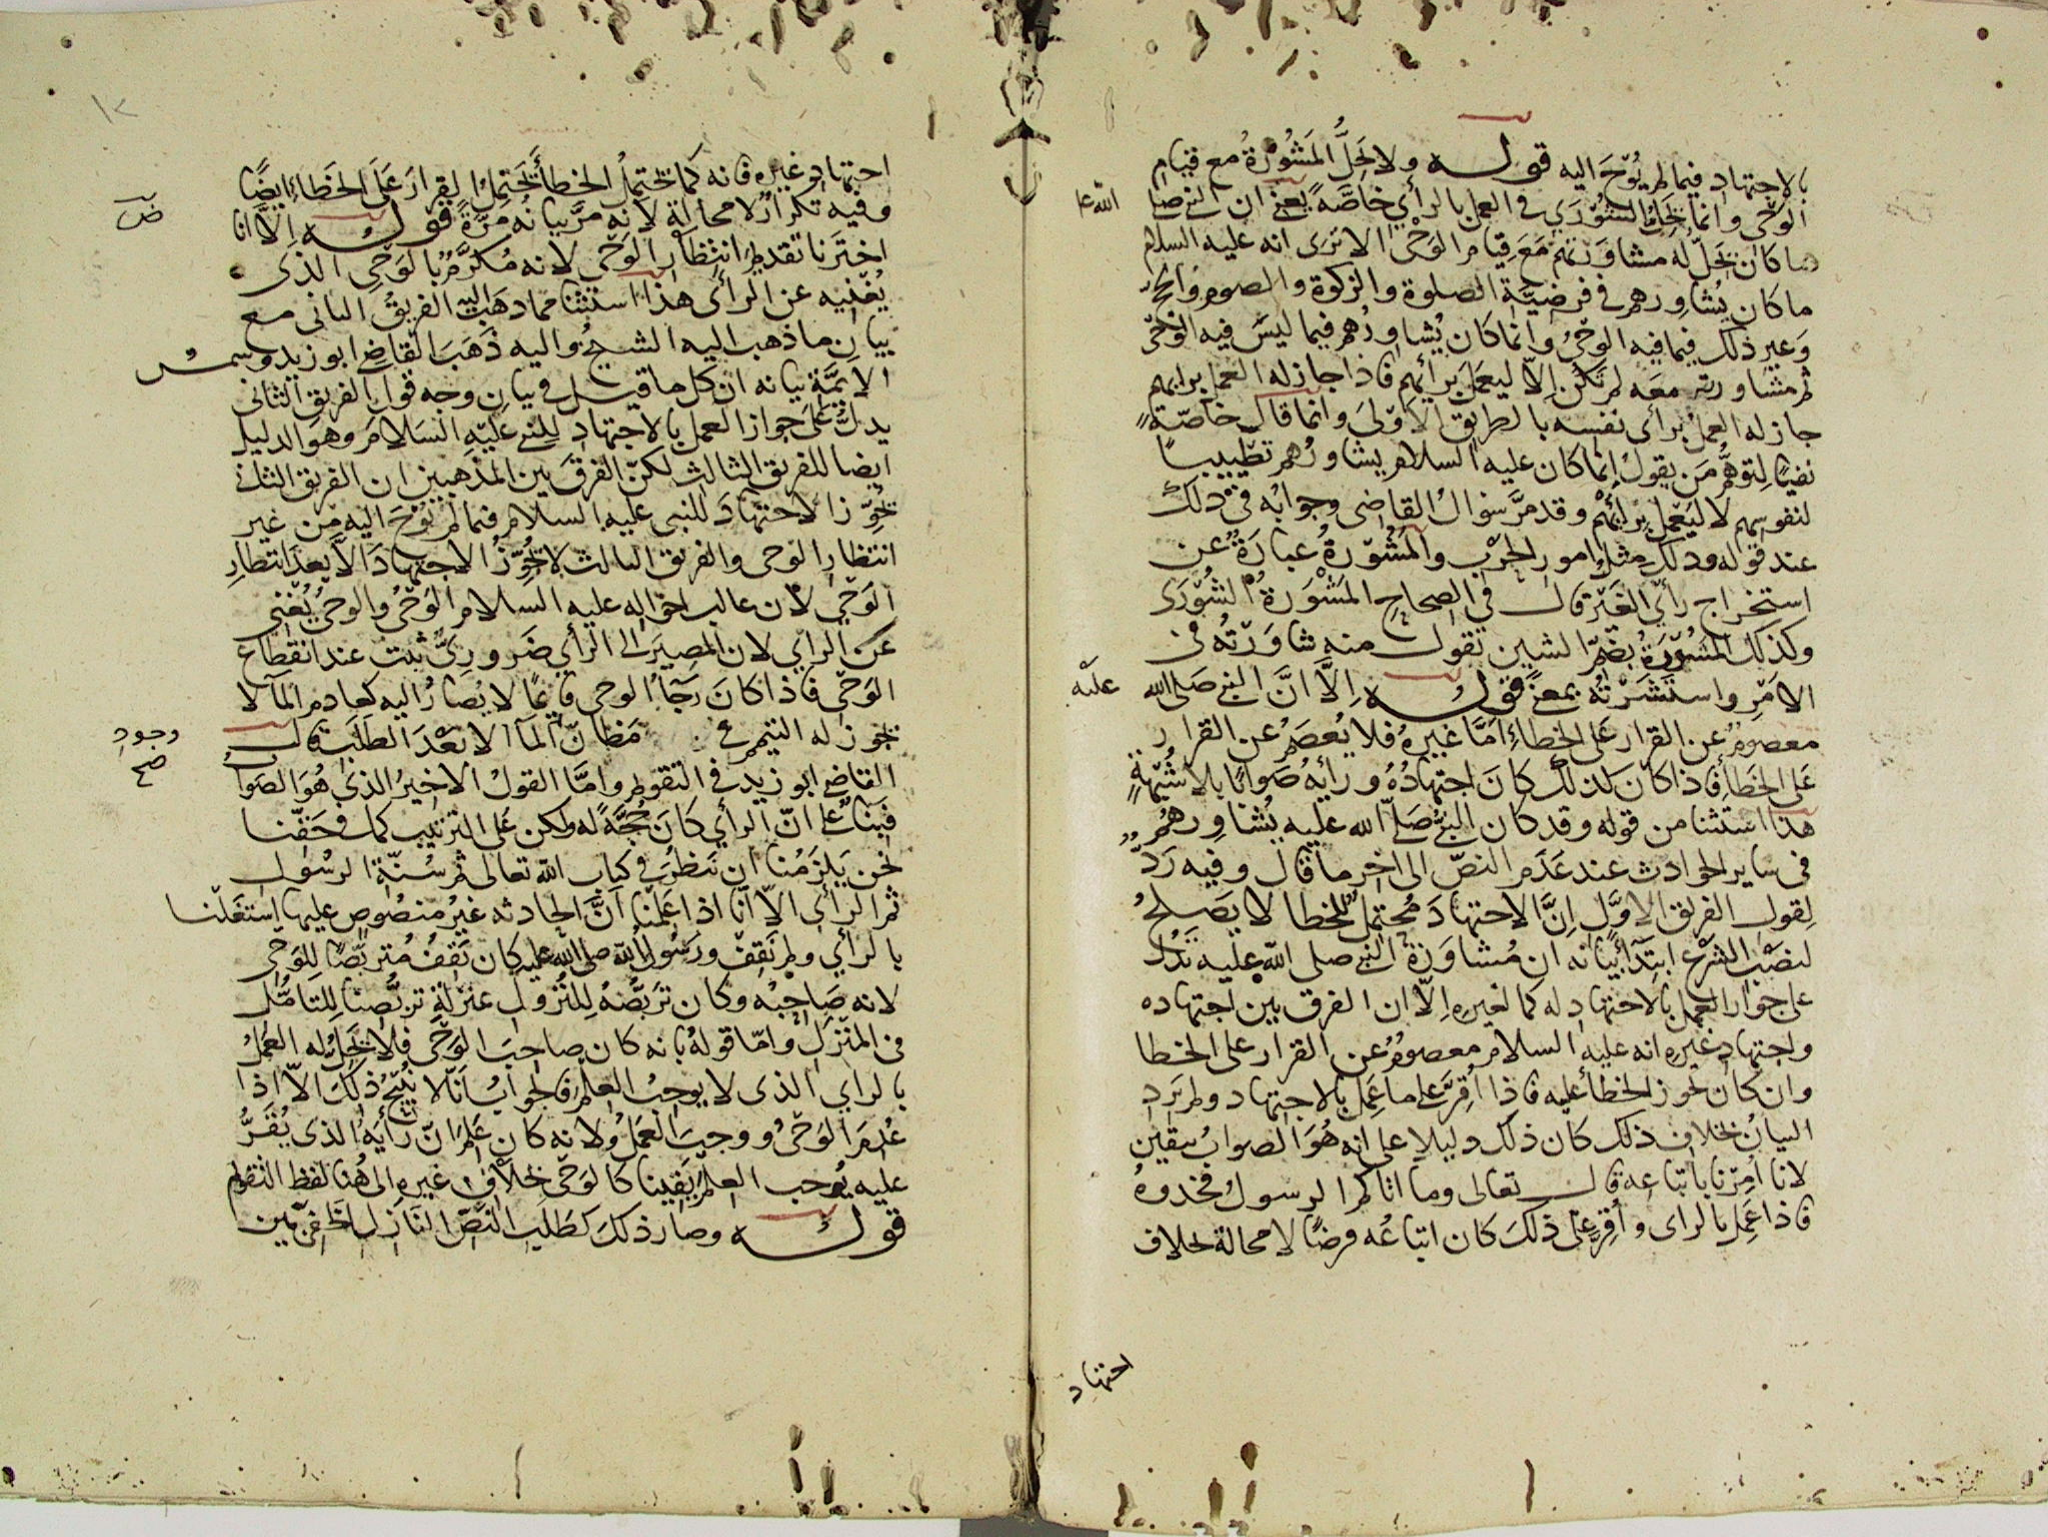 بالاجتهاد فيما لم يُوْحَ اليه قوله ولا تحل المَشُوْرَةُ مع قيام
الوَحْي وانما تحل الشُّوْرَى في العمل بالرأي خاصّةً يعني ان النبي صلى
الله عل
ما كان تحلّ له مشاورتهم مَعَ قيام الوَحْي الا ترى انه عليه السلام
ما كان يُشاوِرهم في فرضيّة الصلوة والزكوة والصوم والحج
وَغير ذلك فيما فيه الوحْيُ وانما كان يُشاوِرُهم فيما ليسَ فيه الوَحْيُ
ثم مشاورتهم معه لم تكن الّا ليعمَل برأيهم فاذا جاز له العمل برأيهم
جاز له العملُ برأى نفسه بالطريق الاَوْلىَ وانما قال خاصّةً
نفيًا لِتوهُّم مَن يقولُ إنّما كان عليه السلام يشاورُهم تطييبًا
لنفوسهم لا ليَعْمل برأيهمْ وقد مرَّ سؤالُ القاضى وجوابُه في ذلك
عند قوله وذلك مثلُ امور الحَرْب والمَشُوْرةُ عبارةٌ عن
استخراج رأيِ الغَيْر قال في الصحاح المَشْوَرةُ الشُّوْرَى
وكذلك المَشُوْرَةُ بضمّ الشين تقول منه شاوَرْتُه فى
الامْرِ واستَشَرْتُه بمعنىً قولُه اِلاَّ انَّ النبي صَلى الله
عليْه
معصومٌ عن القرار عَلى الخطاءِ امَّا غيرهُ فلا يُعصَمُ عن القرار
عَلى الخَطأ فاذا كان كذلك كانَ اجتهادُهُ ورأيهُ صَوابًا بلا شُبْهةٍ
هذا استثنا من قوله وقد كان النبيُّ صَلّى الله عليه يُشاوِرهُم
فى ساير الحوادث عند عَدَم النصّ الى اخر ما قال وفيه رَدّ
لِقول الفريق الاوّل اِنَّ الاجتهادَ مُحتمِلٌ للخطا لا يَصْلحُ
لنصْب الشرْع ابتداً بيانه ان مُشاوَرَةَ النبي صلى الله عليه تدُل
على جواز العمل بالاجتهادِ له كما لغيره اِلّا ان الفرق بين اجتهاده
واجتهاد غيره انه عليه السلام معصومٌ عن القرار على الخطا
وان كان يجوز الخطأ عليه فاذا اُقِرَّ على ما عمِل بالاجتهاد ولم يَرِد
البيانُ بخلاف ذلك كان ذلك دليلا على انه هُوَ الصوابُ بيقين
لانا اُمِرْنا باتّباعه قال تعالى وما اتاكم الرسولُ فخذوهُ
فاذا عَمِل بالراى واُقِرّ علىَ ذلكَ كان اتباعُه فرضًا لا محالة بخلاف
اجتهاد
١٢
اجتهادِ غيره فانه كما يحتمِلُ الخطأَ يَحتمِل القرارَ عَلَى الخطاءِ ايضًا
وفيه تكرارٌ لا محالة لانه مرَّ بيانُه مرّةً قولُه الّا انا
ض
اخترنا تقديمَ انتظارِ الوَحْي لانه مُكرَّمٌ بالوَحْيِ الذى
يُغْنِيه عن الرأى هذا استثنا مما ذهَب اليه الفريقُ الثانى مع
بيانِ ما ذهب اليه الشيخُ واليه ذَهَبَ القاضي ابو زيد وشمسُ
الايمّة بيانه ان كل ما قيل في بيان وجه قول الفريق الثانى
يدلّ على جواز العمل بالاجتهاد للنبي عَليْهِ السَلامَ وهو الدليل
ايضا للفريق الثالث لكنّ الفرقَ بَين المذهبين ان الفريق الثانى
يُجوِّز الاجتهادَ للنبى عليه السلام فيما لم يُوحَ اليه من غير
انتظار الوحى والفريق الثالث لا يُجوِّزُ الاجتهادَ الاّ بعدَ انتظارِ
الوَحْي لانّ غالب احوَاله عليه السلام الوَحْيُ والوحىُ يُغْنِي
عَن الراي لان المصِيرَ الى الرأيِ ضَروريٌّ ثبَت عند انقطاع
الوَحْي فاذا كانَ رَجآءُ الوحى قايمًا لا يُصارُ اليه كعادم المآ لا
يجوز له التيمم في مَظانّ المآ الّا بَعْدَ الطَلَب قال
وجود
صح
القاضى ابو زيد في التقويم وامّا القولُ الاخيرُ الذى هُوَ الصَوا
فبَناً على انّ الرأي كانَ حُجَّةً له ولكن عَلى الترتيب كما في حَقّنا
نحن يَلزَمُنا ان ننظرَ في كتاب الله تعالى ثم سُنّة الرسُول
ثم الرأى الّا انّا اذا عَلِمْنا انَّ الحادثه غيرُ منصُوصٍ عليها استغَلْنا
بالرأي ولم نَقِفْ ورَسُول الله صلى الله عليه كان يَقفُ مُتربِّصًا للوَحى
لانه صَاحِبُه وكان تَرَبُّصُهُ لِلنُزُول بمنزلةِ تربُّصِنا لِلتَامُّل
فى المنَزّل وامّا قولُهُ بانه كان صاحبَ الوَحْي فلا تحِلّ له العَمُل
بالراي الذى لا يوجِبُ العِلمَ فالجوابُ انّا لا نُبِيْحُ ذلكَ الّا اذا
عُدِمَ الوَحْىُ ووجبَ العَمَلُ ولانه كان علمَ انّ رأيَهُ الذى يُقَرُّ
عليه يُوجب العِلْمَ يَقينا كالوَحْي بخلافِ غيره الى هُنا لفظ التقويم
قولُه وصار ذلكَ كطَلَبِ النَصِّ النَازِل الخَفِيّ بَين